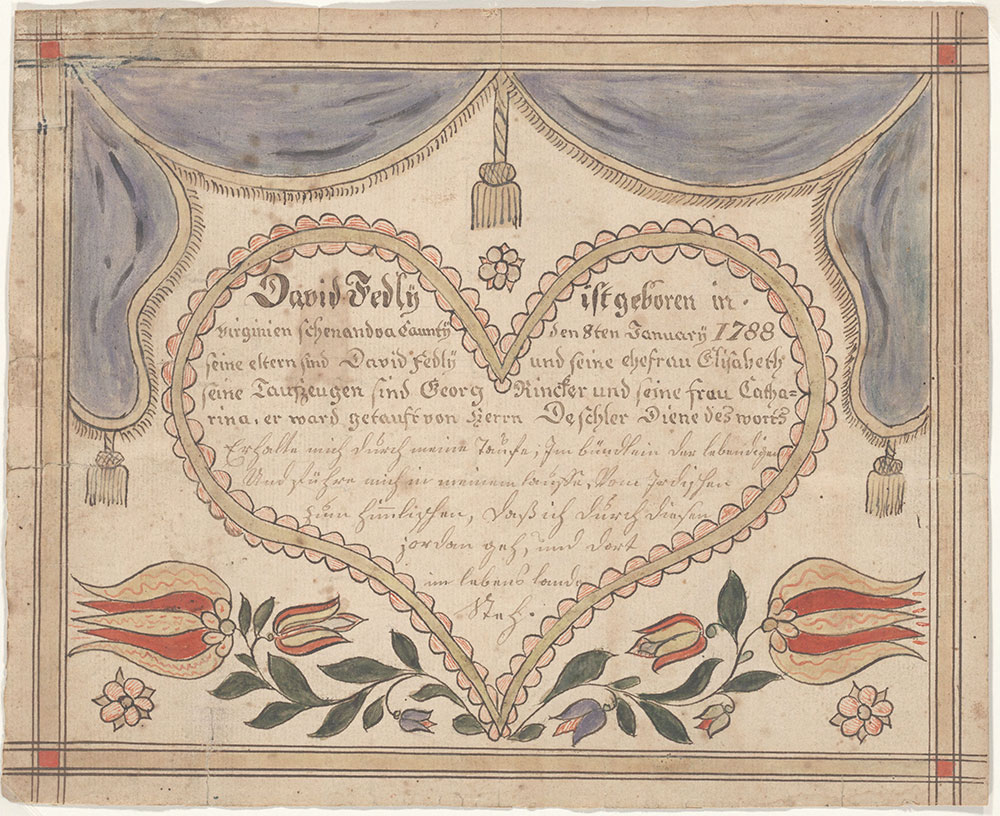 David Fedlÿ ist geboren in.
Virginien schenandoa Caunty den 8ten Januarÿ 1788
seine eltern sind David Fedlÿ und seine ehefrau Elisabeth
seine Taufzeugen sind Georg Rincker und seine frau Catha=
rina, er ward getauft von Herrn Deschler Diene des worts
Erhalte mich durch meine taufe, Im bündlein der lebendigen
Und führe mich in meinem lauffe, Vom Irdischen
zum himlischen, Daß ich durch diesen
jordan geh, und dort
im lebens lande
Steh.